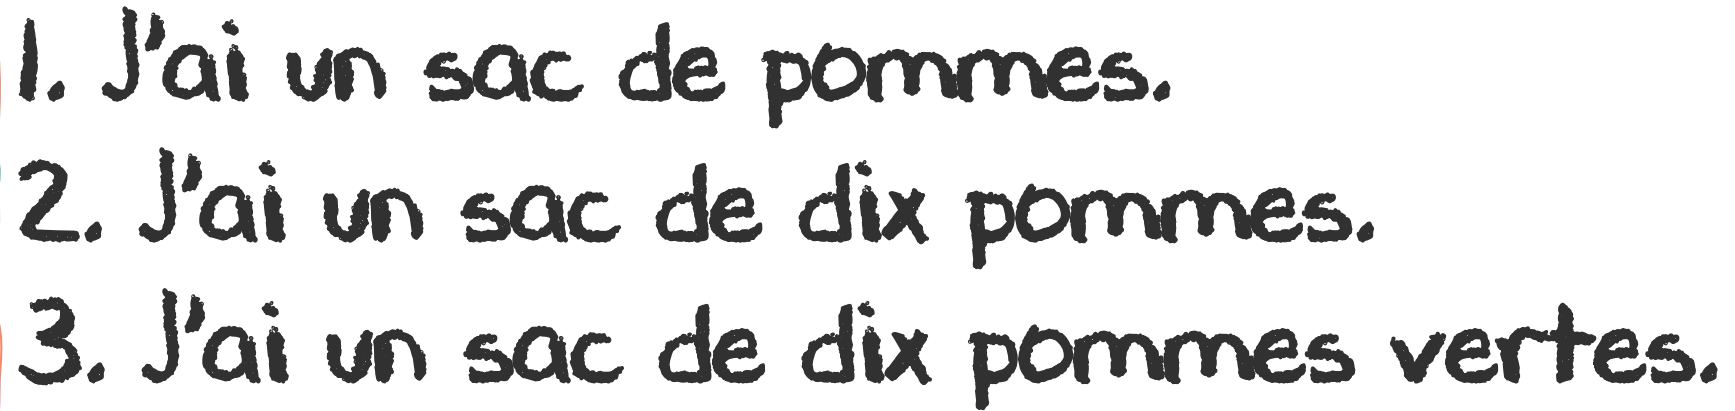 1. J'ai un sac de pommes.
2. J'ai un sac de dix pommes.
3. J'ai un sac de dix pommes vertes.